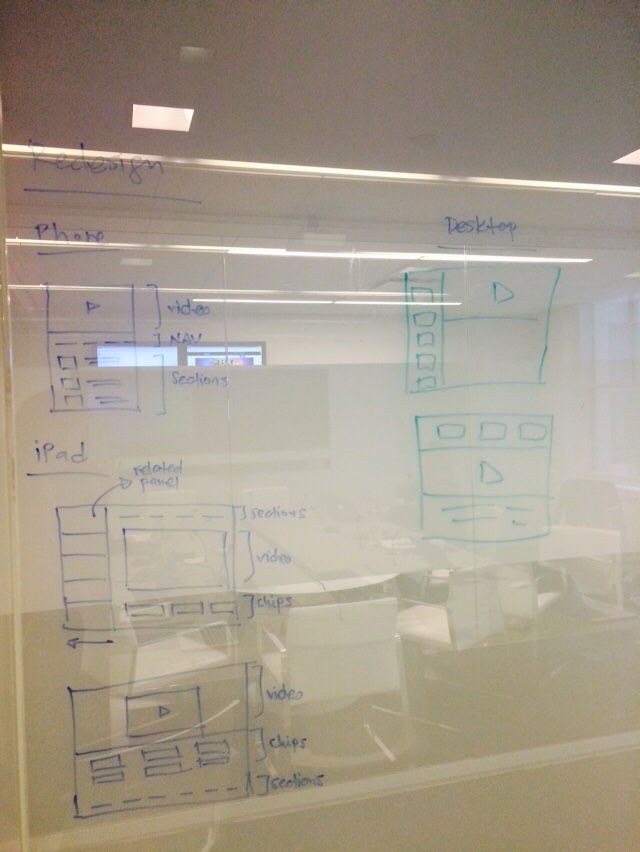 Redesign
Phone
video
NAV
Sections
iPad
related
panel
sections
video
chips
video
chips
sections
Desktop